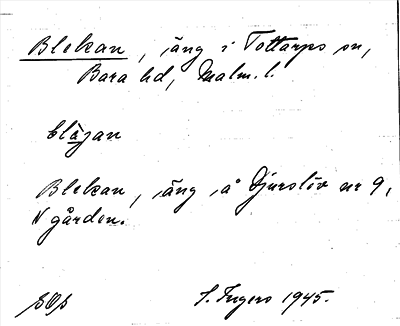 Blekan, äng i Tottarps sn,
Bara hd, Malm. l.
blägan
Blekan, äng å Djurslöv nr 9,
N gården.
S. Ingers 1945.